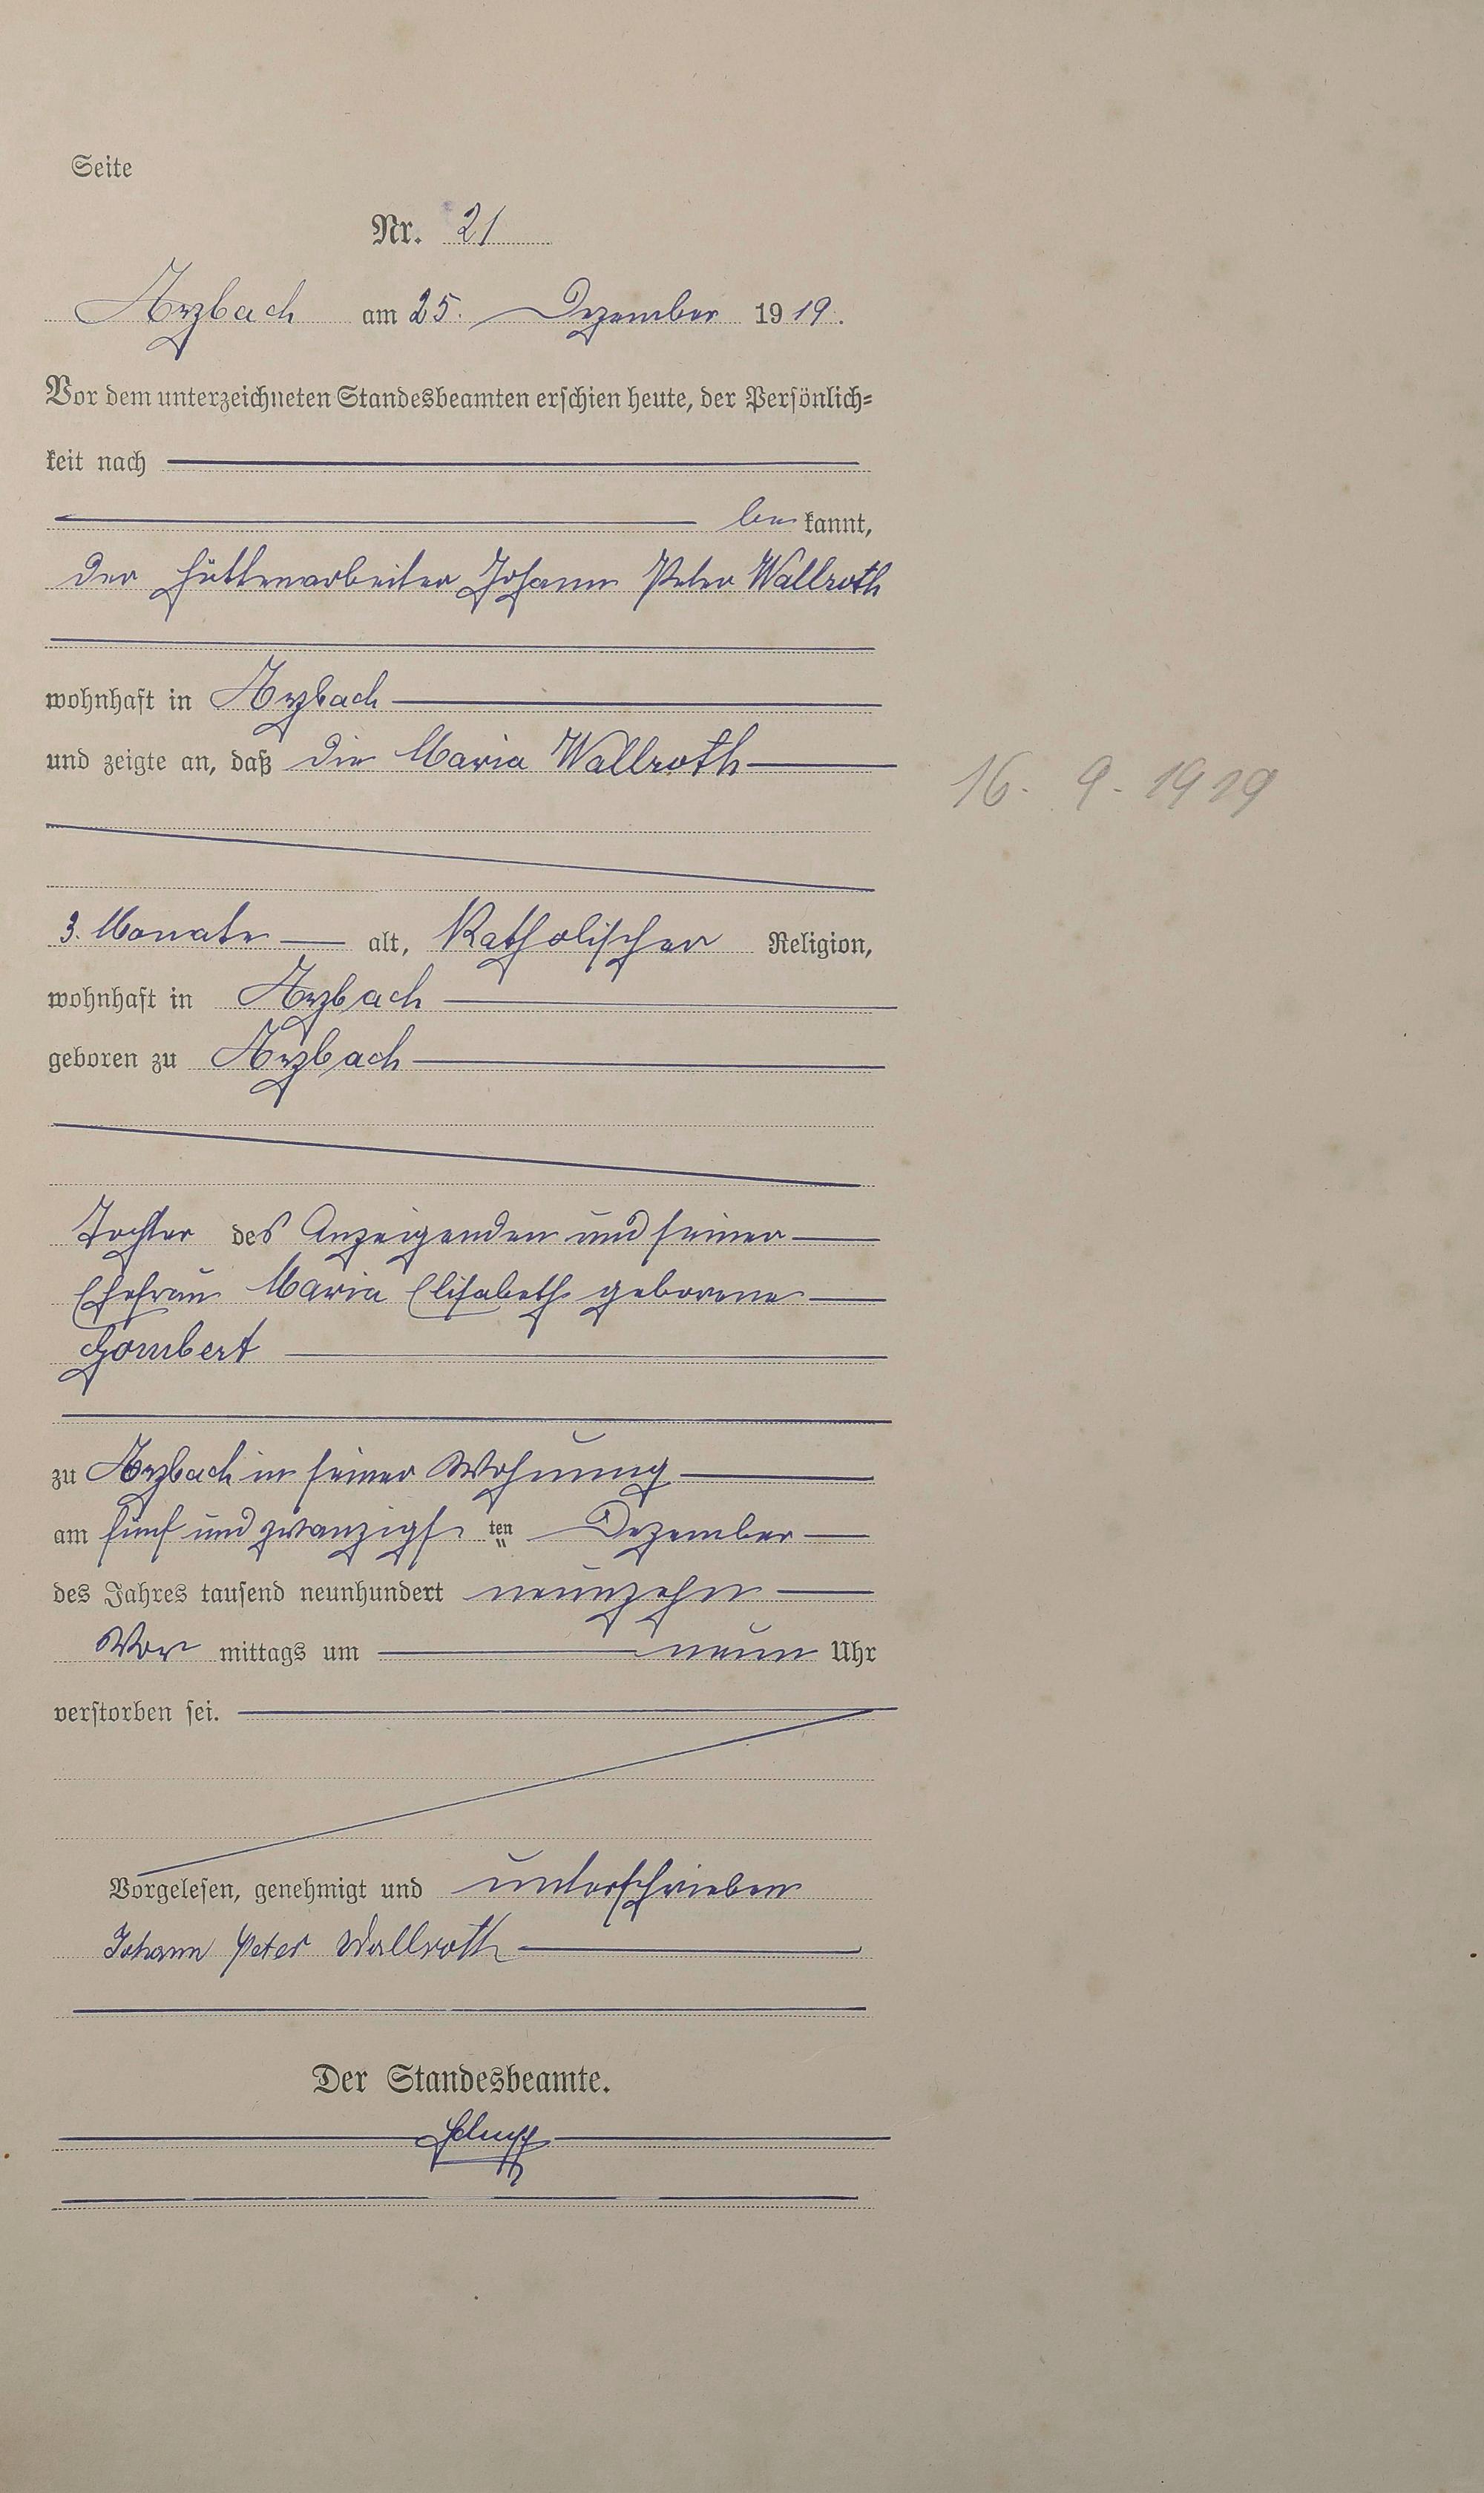 Seite
Nr. 21
Arzbach am 25. Dezember 1919.
Vor dem unterzeichneten Standesbeamten erschien heute, der Persönlich-
keit nach
be kannt,
der Hüttenarbeiter Johann Peter Wallroth
wohnhaft in Arzbach
und zeigte an, daß die Maria Wallroth
16. 9. 1919
3. Monate alt, Katholischer Religion,
wohnhaft in Arzbach
geboren zu Arzbach
Tochter des Anzeigenden und seiner
Ehefrau Maria Elisabeth geborene
Gombert
zu Arzbach in seiner Wohnung
am fünf und zwanzigs ten Dezember
des Jahres tausend neunhundert neunzehn
Vor mittags um neun Uhr
verstorben sei.
Vorgelesen, genehmigt und unterschrieben
Johann Peter Wallroth
Der Standesbeamte.